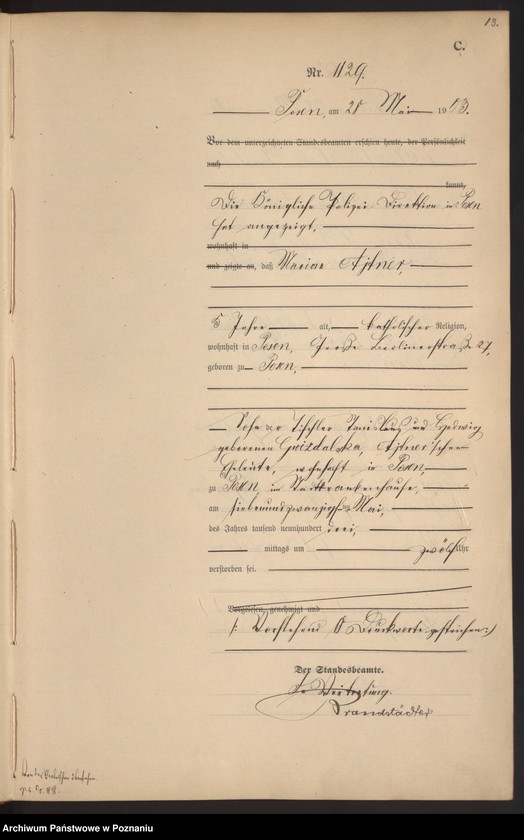 13.
C.
Nr. 1129.
Posen, am 28 Mai 1903.
Vor dem unterzeichneten Standesbeamten erschien heute, der Persönlichkeit
nach
kannt,
Die Königliche Polizei Direktion in Posen
hat angezeigt,
wohnhaft in
und zeigte an, daß Marian Ajtner,
5 Jahre alt, katholischer Religion,
wohnhaft in Posen, Große Berlinerstraße 27,
geboren zu Posen,
Sohn der Tischler Stanislaus und Hedwig
geborenen Gwizdalska, Ajtner'schen
Eheleute, wohnhaft in Posen,
zu Posen, im Stadtkrankenhause,
am siebenundzwanzigsten Mai,
des Jahres tausend neunhundert drei,
mittags um zwölf Uhr
verstorben sei.
Vorgelesen, genehmigt und
/: Vorstehend Druckworte gestrichen :/
Der Standesbeamte.
In Vertretung.
Brandstädter
Archiwum Państwowe w Poznaniu